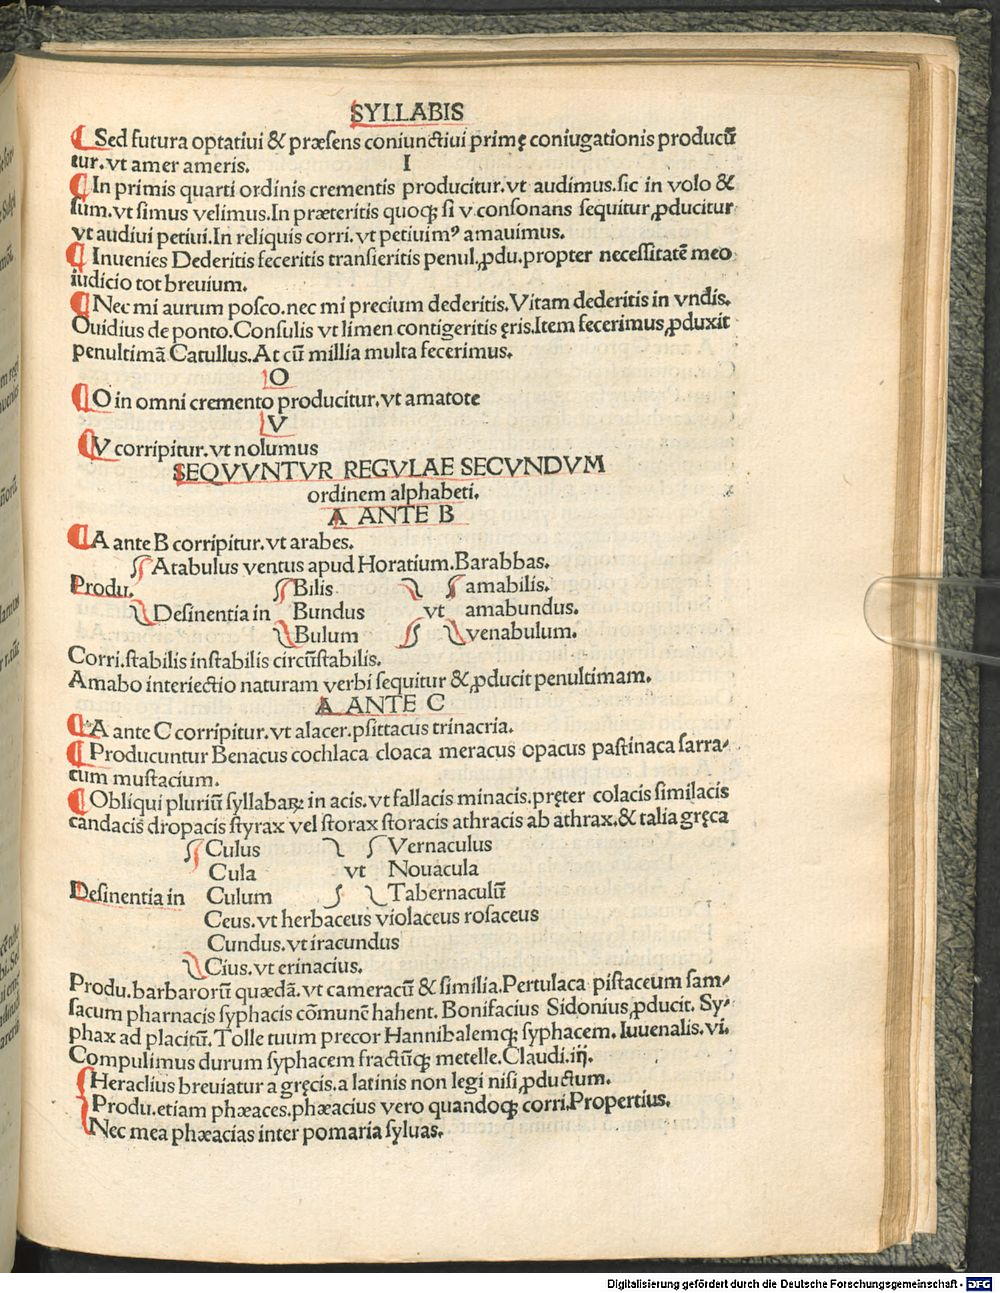 SYLLABIS
¶ Sed futura optatiui & præsens coniunctiui primę coniugationis producũ
tur. vt amer ameris. I
¶ In primis quarti ordinis crementis producitur. vt audimus. sic in volo &
sum. vt simus velimus. In præteritis quoqꝫ si v consonans sequitur ꝓducitur
vt audiui petiui. In reliquis corri. vt petiuimꝰ amauimus.
¶ Inuenies Dederitis feceritis transieritis penul. ꝓdu. propter necessitatẽ meo
iudicio tot breuium.
¶ Nec mi aurum posco. nec mi precium dederitis. Vitam dederitis in vndis.
Ouidius de ponto. Consulis vt limen contigeritis ęris. Item fecerimus ꝓduxit
penultimã Catullus. At cũ millia multa fecerimus.
O
¶ O in omni cremento producitur. vt amatote
V
¶ V corripitur. vt nolumus
SEQVVNTVR REGVLAE SECVNDVM
ordinem alphabeti.
A ANTE B
¶ A ante B corripitur. vt arabes.
Atabulus ventus apud Horatium. Barabbas.
Produ. Bilis amabilis.
Desinentia in Bundus vt amabundus.
Bulum venabulum.
Corri. stabilis instabilis circũstabilis.
Amabo interiectio naturam verbi sequitur & ꝓducit penultimam.
A ANTE C
¶ A ante C corripitur. vt alacer. psittacus trinacria.
¶ Producuntur Benacus cochlaca cloaca meracus opacus pastinaca sarra-
cum mustacium.
¶ Obliqui pluriũ syllabaꝝ: in acis. vt fallacis minacis. pręter colacis similacis
candacis dropacis styrax vel storax storacis athracis ab athrax. & talia gręca
Culus Vernaculus
Cula vt Nouacula
Desinentia in Culum Tabernaculũ
Ceus. vt herbaceus violaceus rosaceus
Cundus. vt iracundus
Cius. vt erinacius.
Produ. barbarorũ quædã. vt cameracũ & similia. Pertulaca pistaceum sam-
sacum pharnacis syphacis cõmunẽ hahent. Bonifacius Sidonius ꝓducit. Sy-
phax ad placitũ. Tolle tuum precor Hannibalemqꝫ syphacem. Iuuenalis. vi.
Compulimus durum syphacem fractũqꝫ metelle. Claudi. iij.
Heraclius breuiatur a gręcis. a latinis non legi nisi ꝓductum.
Produ. etiam phæaces. phæacius vero quandoqꝫ corri. Propertius.
Nec mea phæacias inter pomaria syluas.
Digitalisierung gefördert durch die Deutsche Forschungsgemeinschaft - DFG